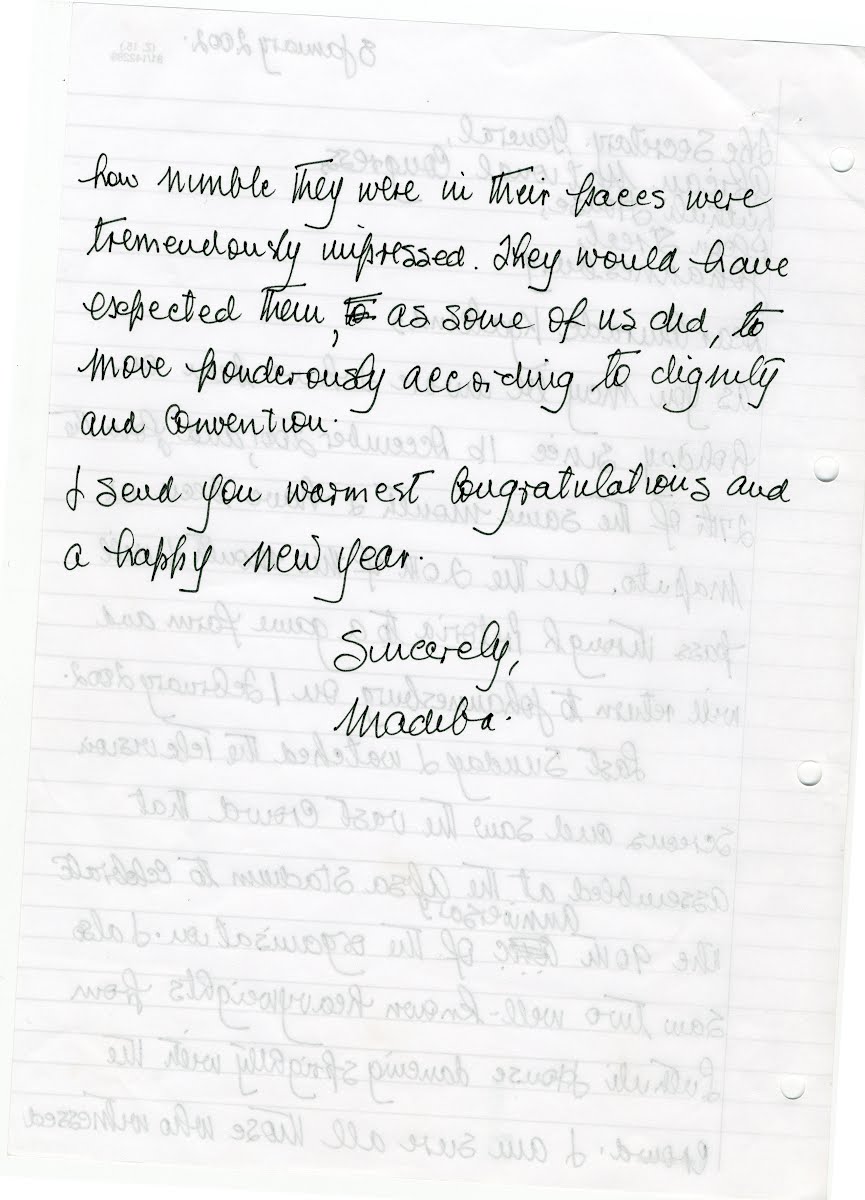 how nimble they were in their paces were
tremendously impressed. They would have
expected them, to as some of us did, to
move ponderously according to dignity
and convention.
I send you warmest congratulations and
a happy new year.
Sincerely,
Madiba.